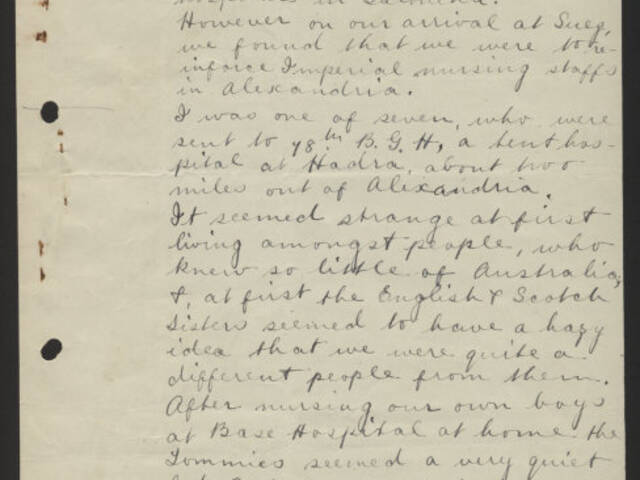 hospitals in Salonika.
However on our arrival at Suez,
we found that we were to re-
inforce Imperial nursing staffs
in Alexandria.
I was one of seven, who were
sent to 78th B.G.H, a tent hos-
pital at Hadra, about two
miles out of Alexandria.
It seemed strange at first
living amongst people, who
knew so little of Australia,
&, at first the English & Scotch
Sisters seemed to have a hazy
idea that we were quite a
different people from them.
After nursing our own boys
at Base Hospital at home the
Tommies seemed a very quiet